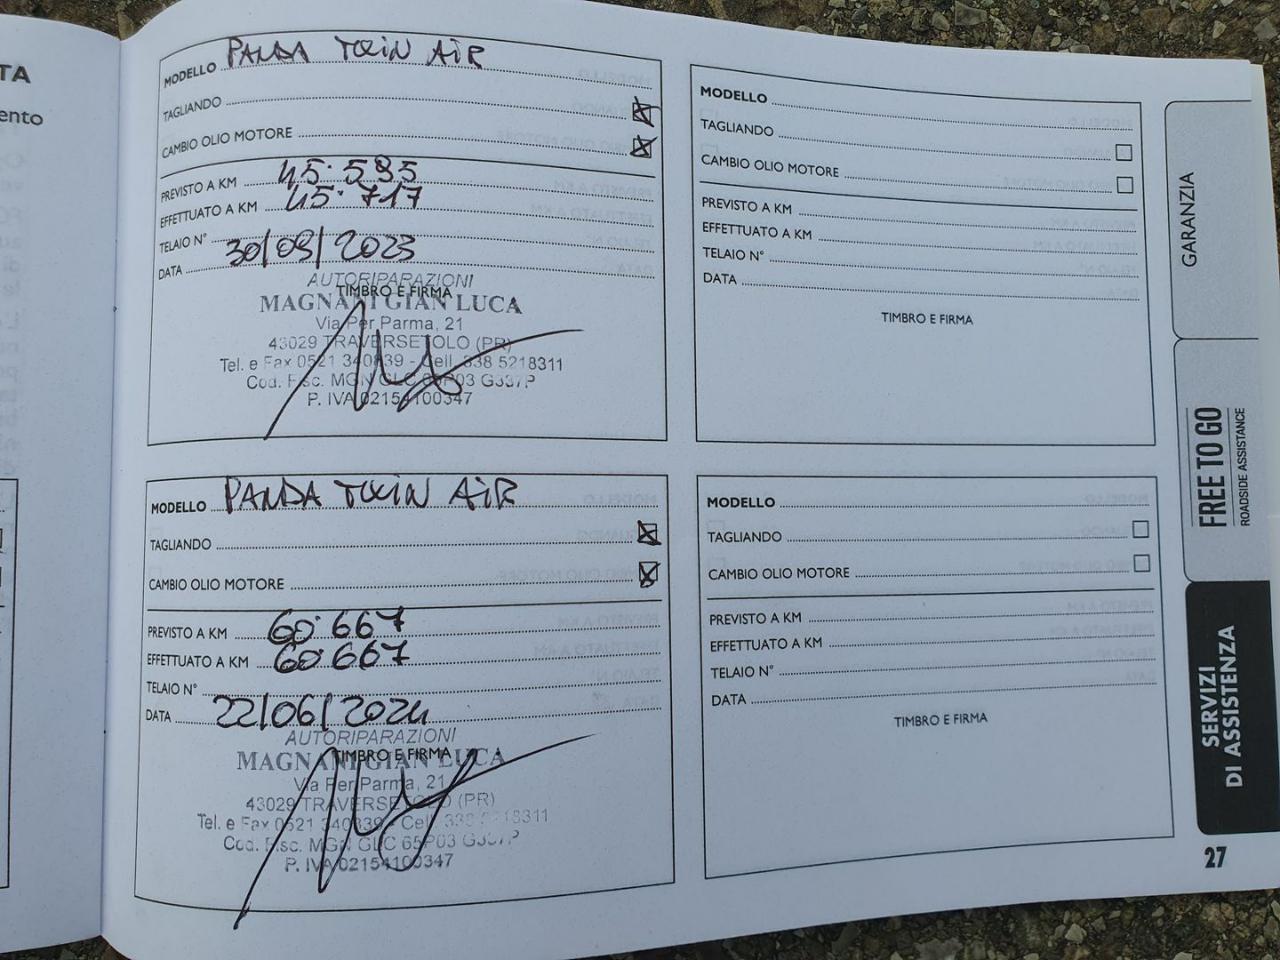 TA
ento
MODELLO PANDA TWIN AIR
TAGLIANDO
CAMBIO OLIO MOTORE
PREVISTO A KM 45.595
EFFETTUATO A KM 45.717
TELAIO N°
DATA 30/09/2023
AUTORIPARAZIONI
TIMBRO E FIRMA
MAGNANI GIAN LUCA
Via Per Parma, 21
43029 TRAVERSETOLO (PR)
Tel. e Fax 0521 340839 - Cell. 338 5218311
Cod. Fisc. MGN GLC 65P03 G337P
P. IVA 02154100347
MODELLO PANDA TWIN AIR
TAGLIANDO
CAMBIO OLIO MOTORE
PREVISTO A KM 60.667
EFFETTUATO A KM 60.667
TELAIO N°
DATA 22/06/2024
AUTORIPARAZIONI
TIMBRO E FIRMA
MAGNANI GIAN LUCA
Via Per Parma, 21
43029 TRAVERSETOLO (PR)
Tel. e Fax 0521 340839 - Cell. 338 5218311
Cod. Fisc. MGN GLC 65P03 G337P
P. IVA 02154100347
MODELLO
TAGLIANDO
CAMBIO OLIO MOTORE
PREVISTO A KM
EFFETTUATO A KM
TELAIO N°
DATA
TIMBRO E FIRMA
MODELLO
TAGLIANDO
CAMBIO OLIO MOTORE
PREVISTO A KM
EFFETTUATO A KM
TELAIO N°
DATA
TIMBRO E FIRMA
GARANZIA
FREE TO GO
ROADSIDE ASSISTANCE
SERVIZI
DI ASSISTENZA
27